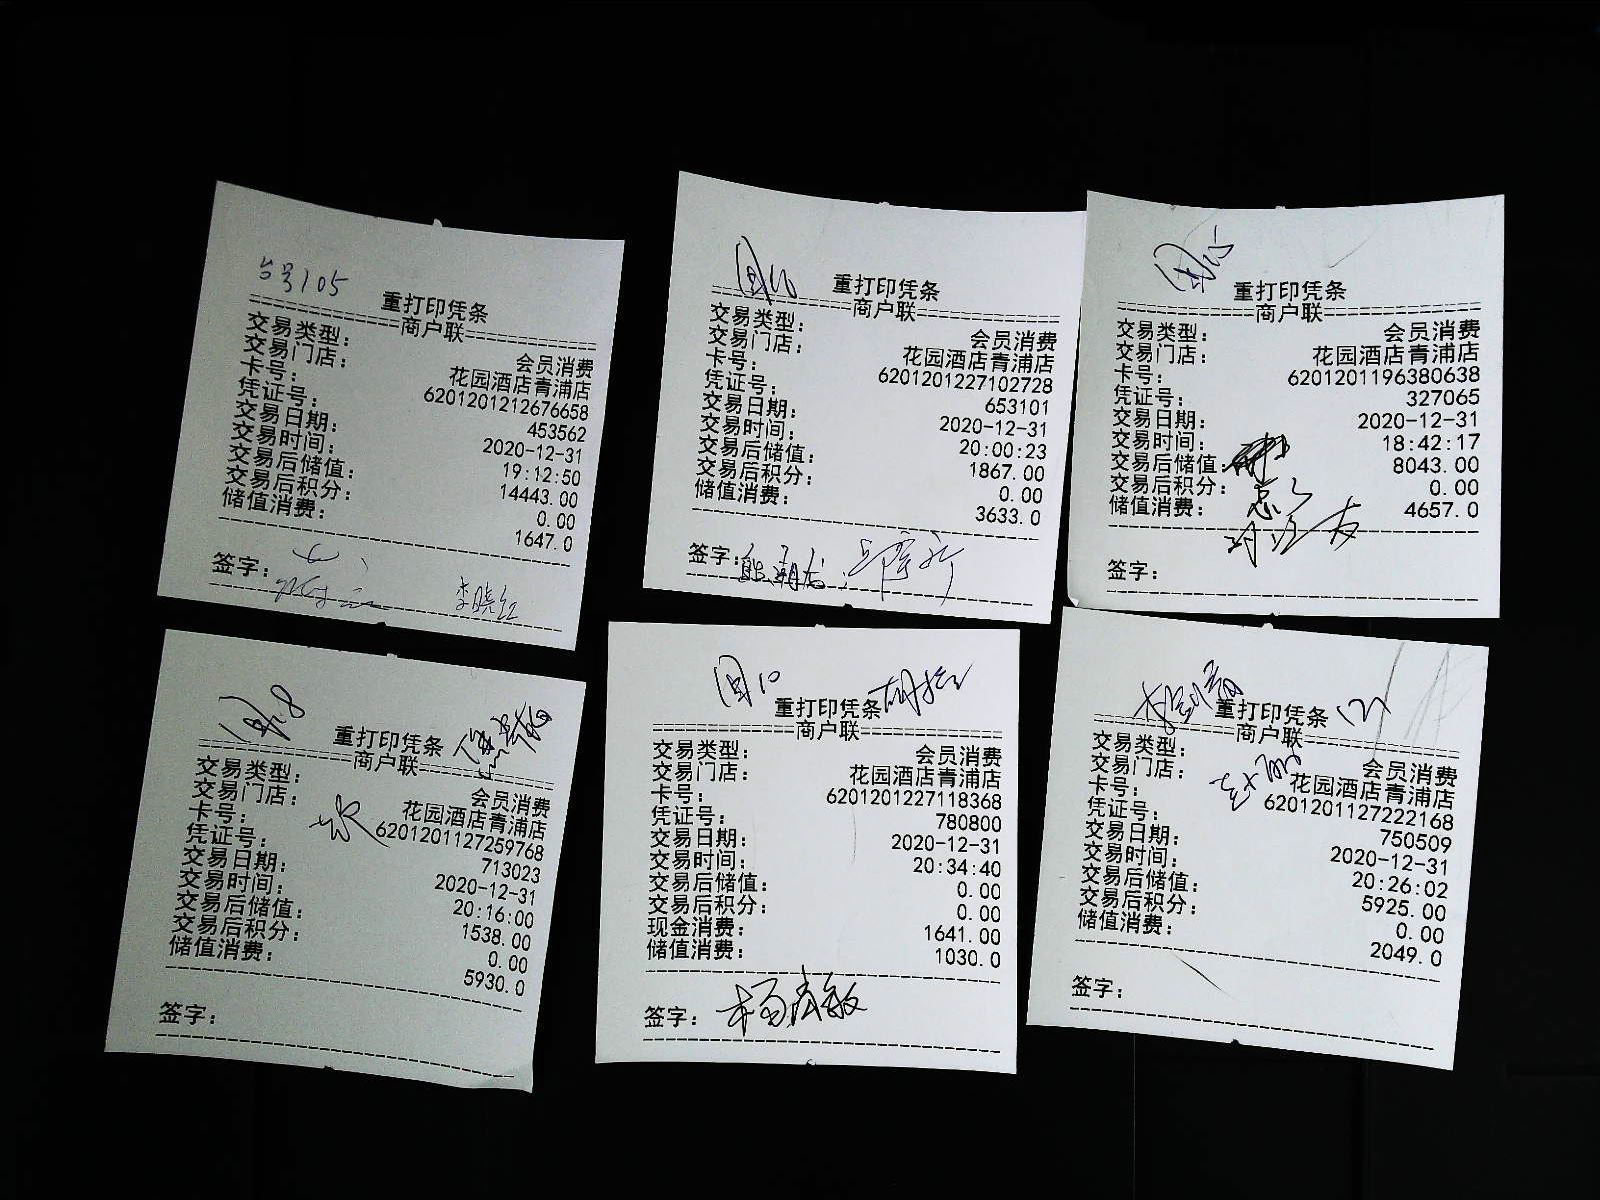 台号105
重打印凭条
商户联
交易类型: 会员消费
交易门店: 花园酒店青浦店
卡号: 6201201212676658
凭证号: 453562
交易日期: 2020-12-31
交易时间: 19:12:50
交易后储值: 14443.00
交易后积分: 0.00
储值消费: 1647.0
签字:
李晓红
重打印凭条
商户联
交易类型: 会员消费
交易门店: 花园酒店青浦店
卡号: 6201201227102728
凭证号: 653101
交易日期: 2020-12-31
交易时间: 20:00:23
交易后储值: 1867.00
交易后积分: 0.00
储值消费: 3633.0
签字:
重打印凭条
商户联
交易类型: 会员消费
交易门店: 花园酒店青浦店
卡号: 6201201196380638
凭证号: 327065
交易日期: 2020-12-31
交易时间: 18:42:17
交易后储值: 8043.00
交易后积分: 0.00
储值消费: 4657.0
签字:
重打印凭条
商户联
交易类型: 会员消费
交易门店: 花园酒店青浦店
卡号: 6201201127259768
凭证号: 713023
交易日期: 2020-12-31
交易时间: 20:16:00
交易后储值: 1538.00
交易后积分: 0.00
储值消费: 5930.0
签字:
重打印凭条
商户联
交易类型: 会员消费
交易门店: 花园酒店青浦店
卡号: 6201201227118368
凭证号: 780800
交易日期: 2020-12-31
交易时间: 20:34:40
交易后储值: 0.00
交易后积分: 0.00
现金消费: 1641.00
储值消费: 1030.0
签字: 杨春敏
重打印凭条
商户联
交易类型: 会员消费
交易门店: 花园酒店青浦店
卡号: 6201201127222168
凭证号: 750509
交易日期: 2020-12-31
交易时间: 20:26:02
交易后储值: 5925.00
交易后积分: 0.00
储值消费: 2049.0
签字: